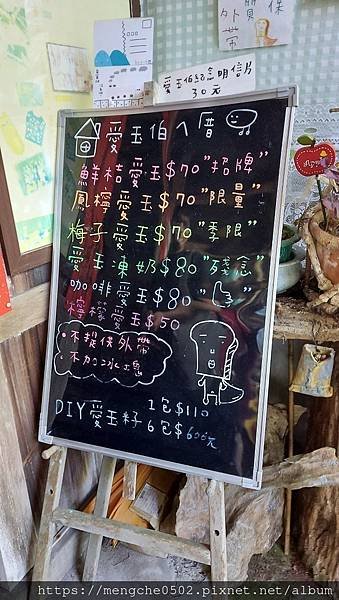 保
外帶
愛玉伯紀念明信片
30元
愛玉伯ㄟ厝
鮮桔愛玉$70"招牌"
鳳檸愛玉$70"限量"
梅子愛玉$70"季限"
愛玉凍奶$80"殘念"
咖啡愛玉$80
檸檬愛玉$50
•不提供外帶
•不加冰塊
DIY愛玉籽 1包$110
6包$600元
https://mengche0502.pixnet.net/album